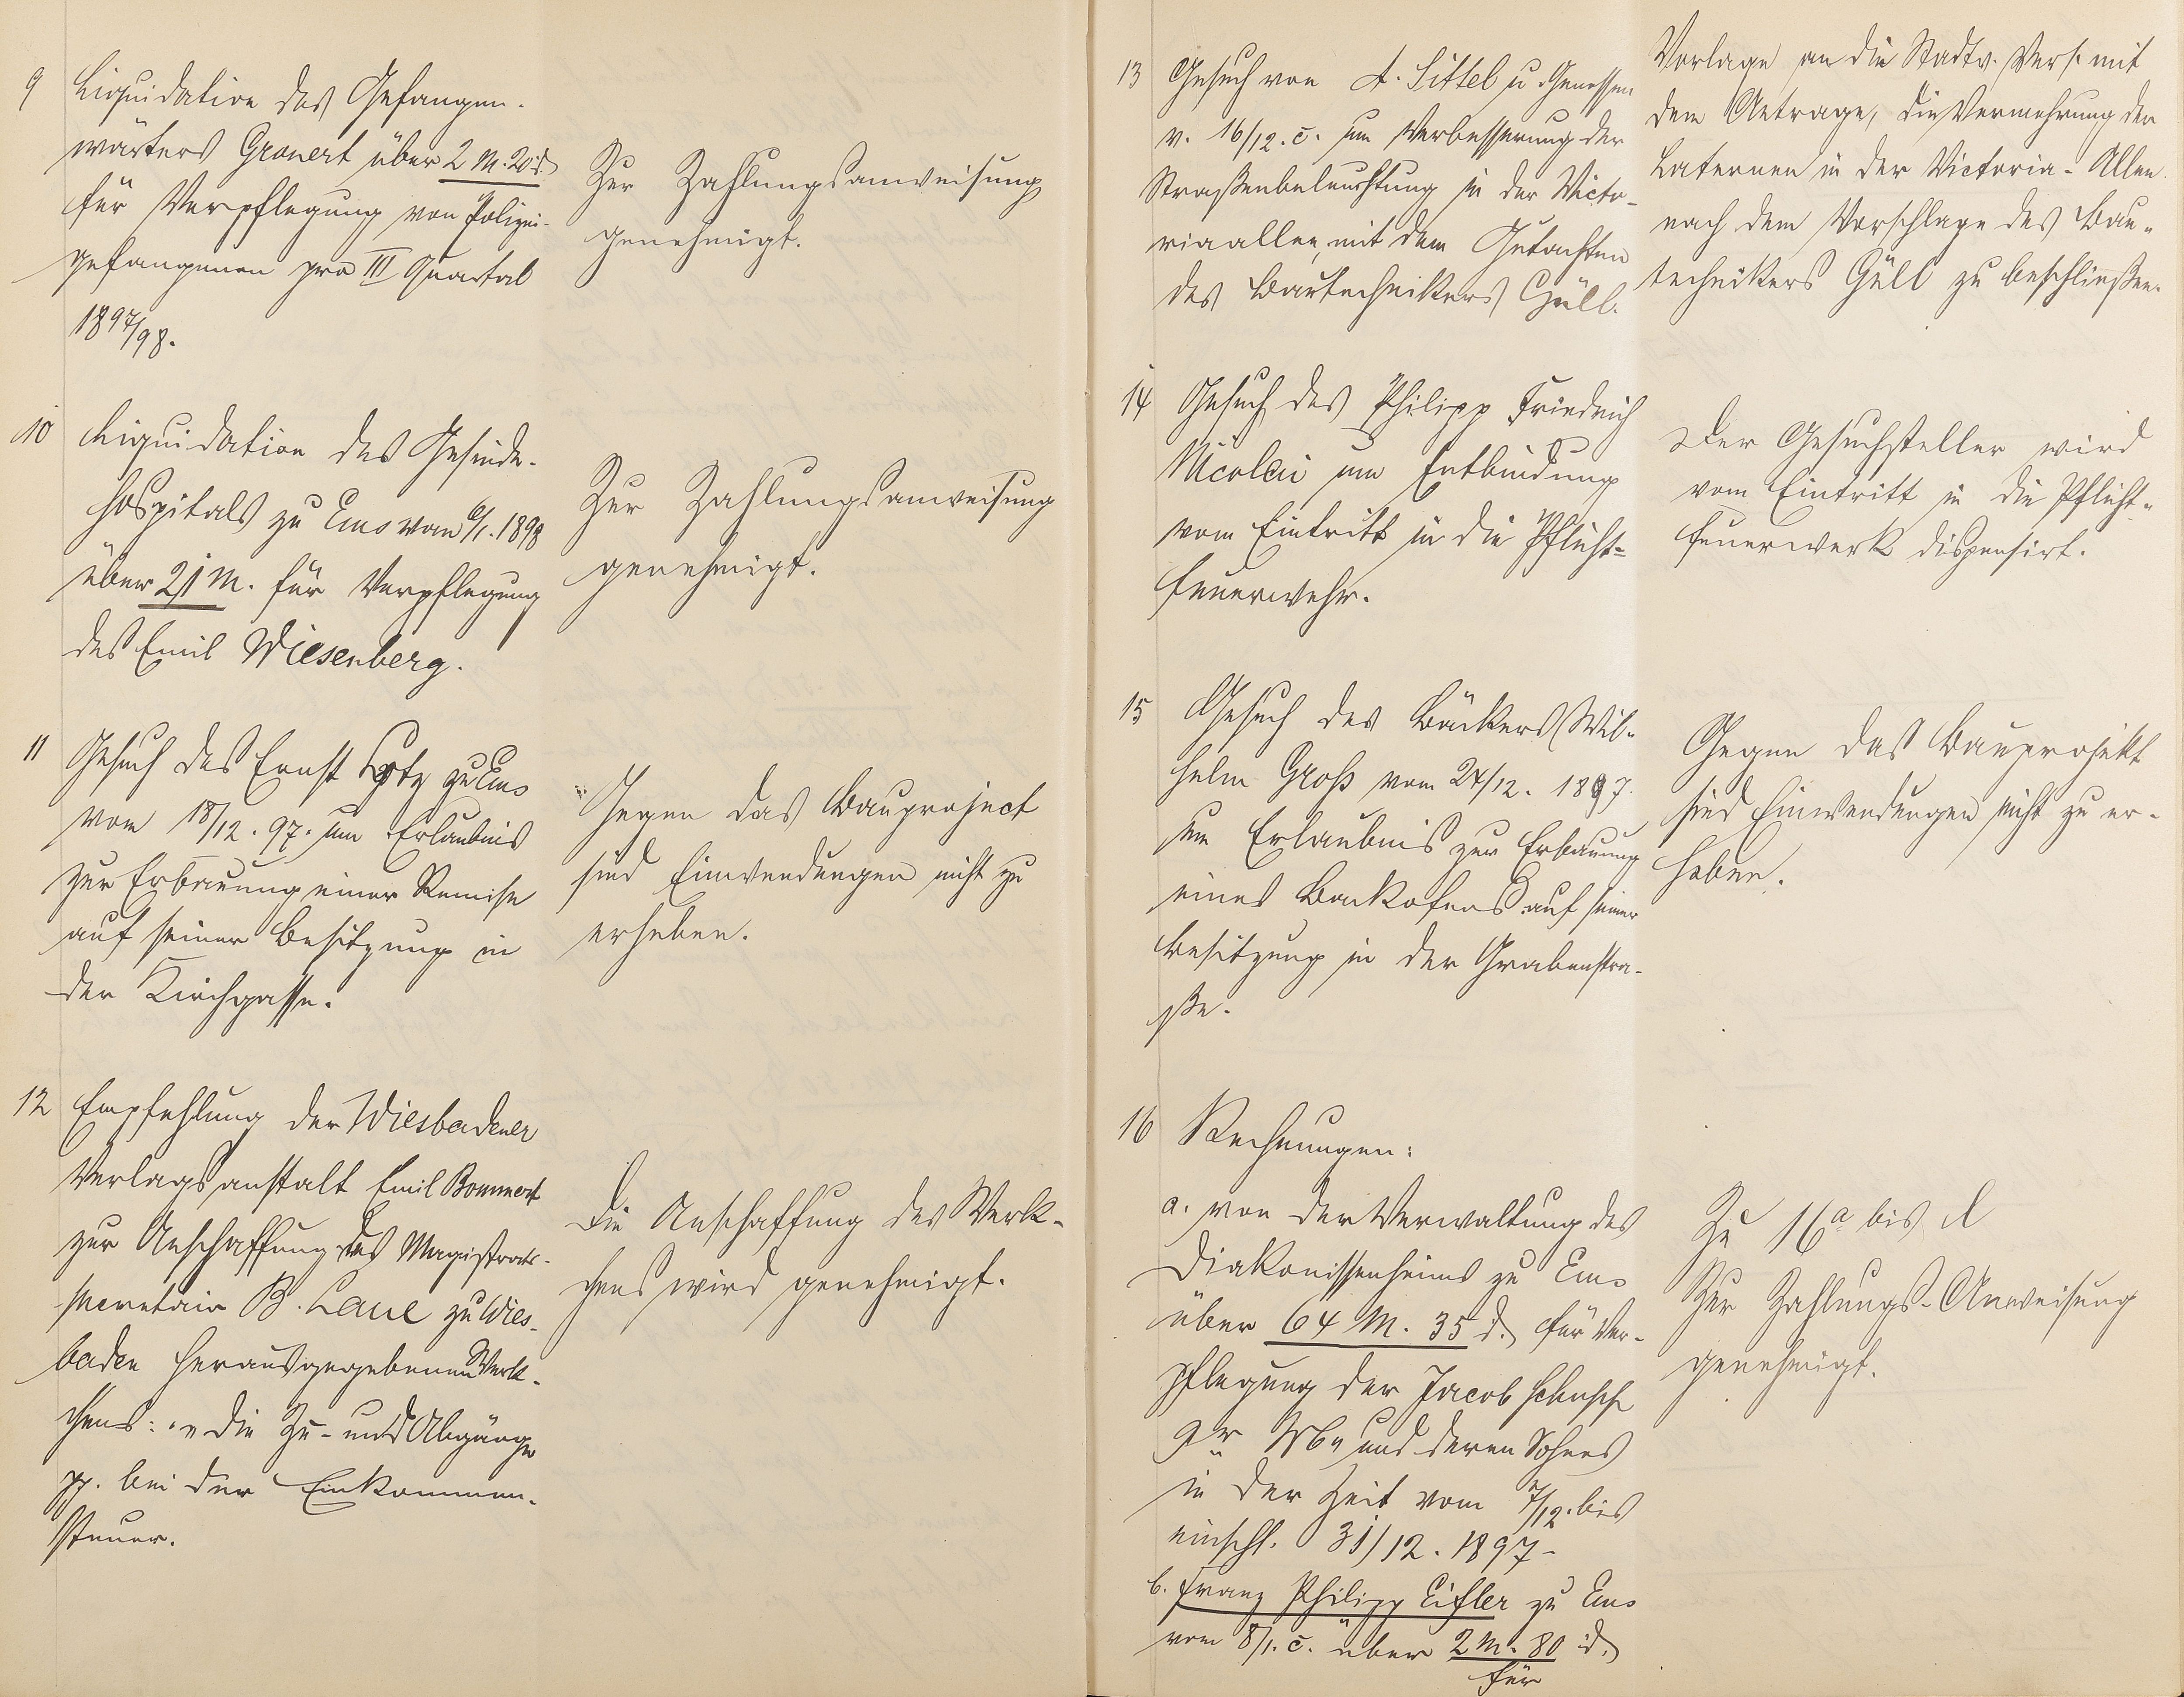 9 Liquidation des Gefangen-
wärters Gronert über 2 M. 20 d.
für Verpflegung von Polizei-
gefangenen pro III Quartal
1897/98.
Zur Zahlungsanweisung
genehmigt.
10 Liquidation des Gesinde-
hospitals zu Ems vom 6/1. 1898
über 21 M. für Verpflegung
des Emil Wiesenberg.
Zur Zahlungsanweisung
genehmigt.
11 Gesuch des Ernst Lotz zu Ems
vom 18/12. 97. um Erlaubnis
zur Erbauung einer Remise
auf seiner Besitzung in
der Kirchgasse.
Gegen das Bauproject
sind Einwendungen nicht zu
erheben.
12 Empfehlung der Wiesbadener
Verlagsanstalt Emil Bommert
zur Anschaffung des Magistrats-
secretair B. Laue zu Wies-
baden herausgegebenen Werk-
chens: „die Zu- und Abgänge
pp. bei der Einkommen-
steuer.
Die Anschaffung des Werk-
chens wird genehmigt.
13 Gesuch von A. Sittel u. Genossen
v. 16/12. c. um Verbesserung der
Straßenbeleuchtung in der Victo-
riaallee, mit dem Gutachten
des Bautechnikers Güll.
Vorlage an die Stadtv. Vers. mit
dem Antrage, die Vermehrung der
Laternen in der Victoria-Allee
nach dem Vorschlage des Bau-
technikers Güll zu beschließen.
14 Gesuch des Philipp Friedrich
Nicolai um Entbindung
vom Eintritt in die Pflicht-
feuerwehr.
Der Gesuchsteller wird
vom Eintritt in die Pflicht-
feuerwerk dispensirt.
15 Gesuch des Bäckers Wil-
helm Groß vom 24/12. 1897.
um Erlaubnis zur Erbauung
eines Backofens auf seiner
Besitzung in der Grabenstra-
ße.
Gegen das Bauprojekt
sind Einwendungen nicht zu er-
heben.
16 Rechnungen:
a. von der Verwaltung des
Diakonissenheims zu Ems
über 64 M. 35 d. für Ver-
pflegung der Jacob
und deren Sohnes
in der Zeit vom 7/12. bis
einschl. 31/12. 1897-
b. Franz Philipp Eifler zu Ems
vom 8/1. c. über 2 M. 80 d.
für
Zu 16a bis d
Zur Zahlungs-Anweisung
genehmigt.